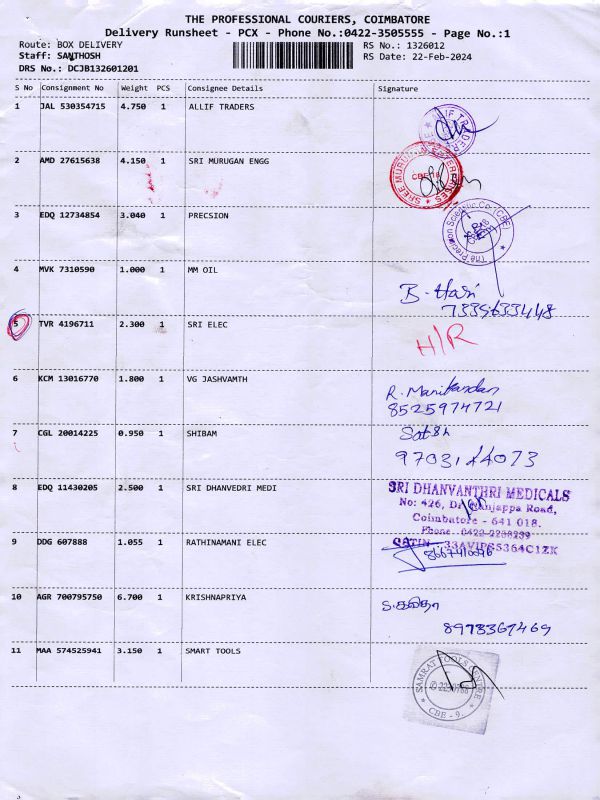 THE PROFESSIONAL COURIERS, COIMBATORE
Delivery Runsheet - PCX - Phone No.:0422-3505555 - Page No.:1
Route: BOX DELIVERY RS No.: 1326012
Staff: SANTHOSH RS Date: 22-Feb-2024
DRS No.: DCJB132601201
S No Consignment No Weight PCS Consignee Details Signature
1 JAL 530354715 4.750 1 ALLIF TRADERS
2 AMD 27615638 4.150 1 SRI MURUGAN ENGG
3 EDQ 12734854 3.040 1 PRECSION
The Precision Scientific Co (CBE)
4 MVK 7310590 1.000 1 MM OIL
B. Hari
7339633448
5 TVR 4196711 2.300 1 SRI ELEC
H/R
6 KCM 13016770 1.800 1 VG JASHVAMTH
R. Manikandan
8525974721
7 CGL 20014225 0.950 1 SHIBAM
9703144073
8 EDQ 11430205 2.500 1 SRI DHANVEDRI MEDI
SRI DHANVANTHRI MEDICALS
No: 426, Road,
Coimbatore - 641 018.
Phone: 0422-2200239
9 DDG 607888 1.055 1 RATHINAMANI ELEC
10 AGR 700795750 6.700 1 KRISHNAPRIYA
8978367469
11 MAA 574525941 3.150 1 SMART TOOLS
SAMRAT TOOLS CENTRE
CBE - 9.